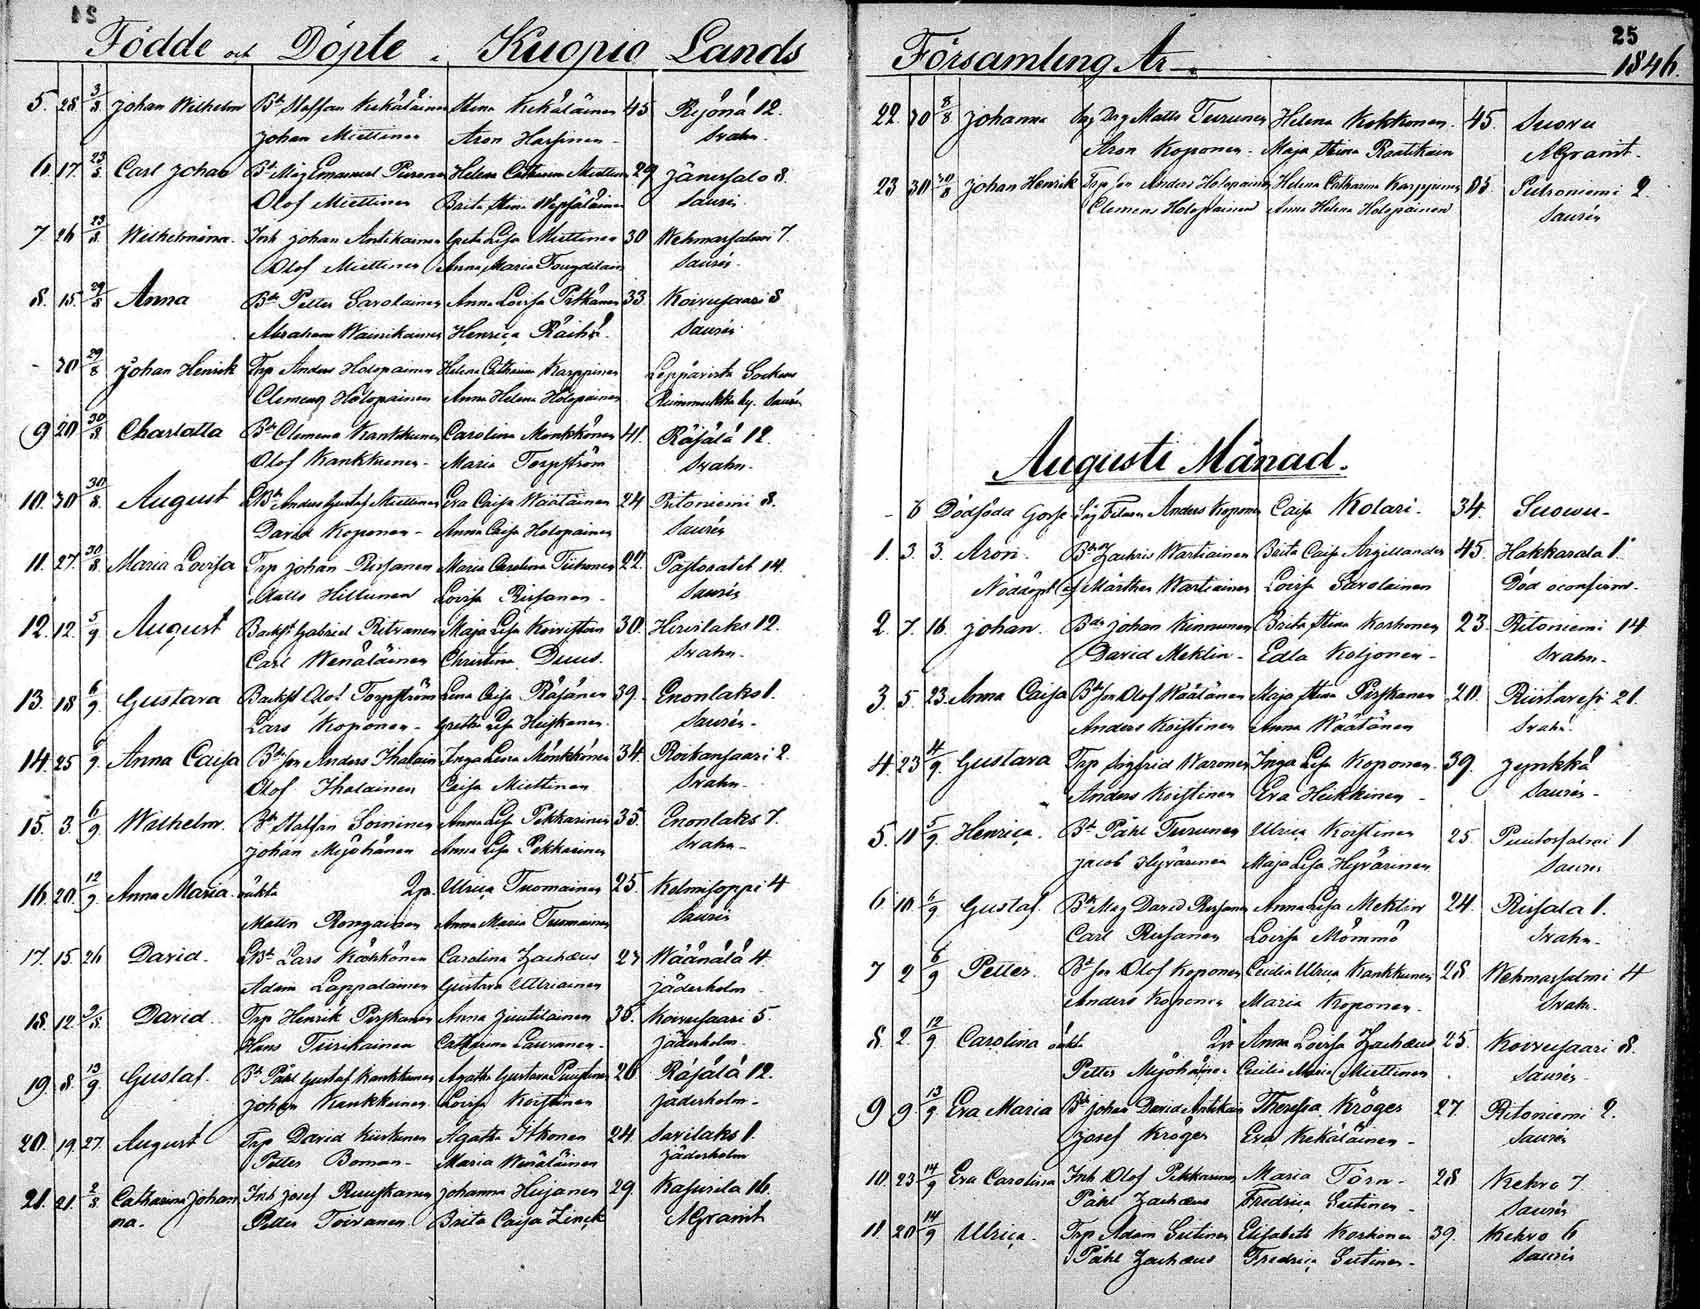 24
Födde och Döpte i Kuopio Lands
5. 28 3/8 Johan Wilhelm Bd Staffan Kekäläinen Stina Kekäläinen 45 Rejona 12.
Johan Miettinen Aron Harpinen Svahn.
6. 17. 23/8 Carl Johan Helena Catharina Miettinen 29 Jänissalo 8.
Olof Miettinen Brita Stina Wepsäläinen Saurén.
7 26 23/8 Wilhelmina. Inh Johan Antikainen Greta Lisa Miettinen 30 Wehmasalmi 7.
Olof Miettinen Anna Maria Saurén.
8. 15. 29/8 Anna Bd Petter Savolainen Anna Lovisa Pitkänen 33. Koivusaari 8
Abraham Wainikainen Henrica Räihä. Saurén
- 30 29/8 Johan Henrik Trp Anders Holopainen Helena Catharina Karppinen Leppävirta Socken
Clemens Holopainen Anna Helena Holopainen by. Saurén
9 20 30/8 Charlotta Bd Clemens Kankkunen Carolina Mönkkönen 41. Räsälä 12.
Olof Kankkunen - Maria Torpström Svahn.
10. 30 30/8. August Anders Gustaf Miettinen Eva Caisa Wäätäinen 24 Ritoniemi 8.
David Koponen - Anna Caisa Holopainen Saurén
11. 27. 30/8 Maria Lovisa Trp Johan Rissanen Maria Carolina Tiihonen 22. Pastoratet 14.
Matts Hiltunen Lovisa Rissanen - Saurén
12. 12. 5/9 August Gabriel Ritvanen Maja Lisa Koivistoin 30. Hirvilaks 12.
Carl Wenäläinen Christina Duus. Svahn.
13. 18 6/9. Gustava Olof Torpström Lena Caisa Räsänen 39. Enonlaks 1.
Lars Koponen - Gretha Lisa Huiskonen. Saurén -
14. 25 6/9. Anna Caisa Bd son Anders Ihalain Inga Lena Mönkkönen 34. Roikansaari 2.
Olof Ihalainen Caisa Miettinen Svahn -
15. 3. 6/9 Wilhelm. Bd Staffan Soininen Anna Lisa Pekkarinen 35. Enonlaks 7.
Johan Mijöhänen Anna Lisa Pekkarinen Svahn -
16. 20. 12/9. Anna Maria oäkta Ulrica Tuomainen 25. Kolmisoppi 4
Mattn Rongainen Anna Maria Tuomainen Saurén
17. 15. 26 David. Lars Kärkkönen Carolina Zachæus 27 Wäänälä 4.
Adam Lappalainen Gustava Ulriainen Jäderholm -
18. 12 2/8. David. Trp Henrik Pirskanen Anna Juutilainen 35. Koivusaari 5.
Hans Tiirikainen Catharina Lauranen - Jäderholm -
19. 8. 13/9 Gustaf. Bd Påhl Gustaf Kankkunen Agatha Gustava 26 Räsälä 12.
Johan Kankkunen Lovisa Koistinen Jäderholm -
20. 19. 27. August Trp David Agatha Itkonen 24 Savilaks 1.
Petter Boman - Maria Wenäläinen Jäderholm
21. 21. 2/8 Catharina Johan Inh Josef Ruuskanen Johanna Hujanen 29 Kasurila 16.
na. Petter Toivanen Brita Caisa Zinck AGranit
25
Församling År 1846.
22. 30 8/8 Johanna Matts Turunen Helena Kokkonen. 45. Suovu
Aron Koponen - Maja Stina Raatikain AGranit -
23 30 30/8 Johan Henrik Trp son Anders Holopainen Helena Catharina Karppinen 35 Putroniemi 2.
Clemens Holopainen Anna Helena Holopainen Saurén
Augusti Månad.
- 8 Dödfödd Gosse Anders Koponen Caisa Kolari. 34. Suowu -
1. 3. 3. Aron. Zachris Wartiainen Brita Caisa Argillander 45. Hakkarala 1.
Nöddöpt af Mårthen Wartiainen Lovisa Savolainen Död oconfirm.
2. 7. 16. Johan. Bdr Johan Kinnunen Brita Stina Korhonen 23. Ritoniemi 14
David Meklin - Edla Koljonen - Svahn -
3. 5. 23. Anna Caisa Bd son Olof Wäätänen Maja Stina Pirskanen 20. Riistavesi 21.
Anders Koistinen Anna Wäätänen Svahn.
4. 23 4/9. Gustava Trp Sigfrid Waronen Inga Lisa Koponen. 39. Jynkkä
Anders Koistinen Eva Heikkinen - Saurén -
5. 11 5/9. Henrica. Bd Påhl Turunen Ulrica Koistinen 25. Puutosalmi 1
Jacob Hyvärinen Maja Lisa Hyvärinen Saurén
6 10. 6/9 Gustaf Bd Mag David Rissanen Anna Lisa Meklin 24. Risala 1.
Carl Rissanen Lovisa Mömmö Svahn -
7 2 6/9 Petter. Bd son Olof Koponen Cecilia Ulrica Kankkunen 28 Wehmasalmi 4
Anders Koponen Maria Koponen. Svahn.
8. 2. 12/9 Carolina oäkt Anna Lovisa Zachæus 25. Koivusaari 8.
Petter Mijöhänen Cecilia Maria Miettinen Saurén -
9 9 13/9 Eva Maria Bdr Johan David Antikain Theresia Kröger 27. Ritoniemi 2.
Josef Kröger Eva Kekäläinen - Saurén
10. 23 14/9 Eva Carolina Inh Olof Pekkarinen Maria Törn - 28 Kehvo 7
Påhl Zachæus Fredrica Sutinen - Saurén
11. 20 14/9 Ulrica. Trp Adam Sutinen Elisabeth Korhonen 39. Kehvo 6
Påhl Zachæus Fredrica Sutinen - Saurén